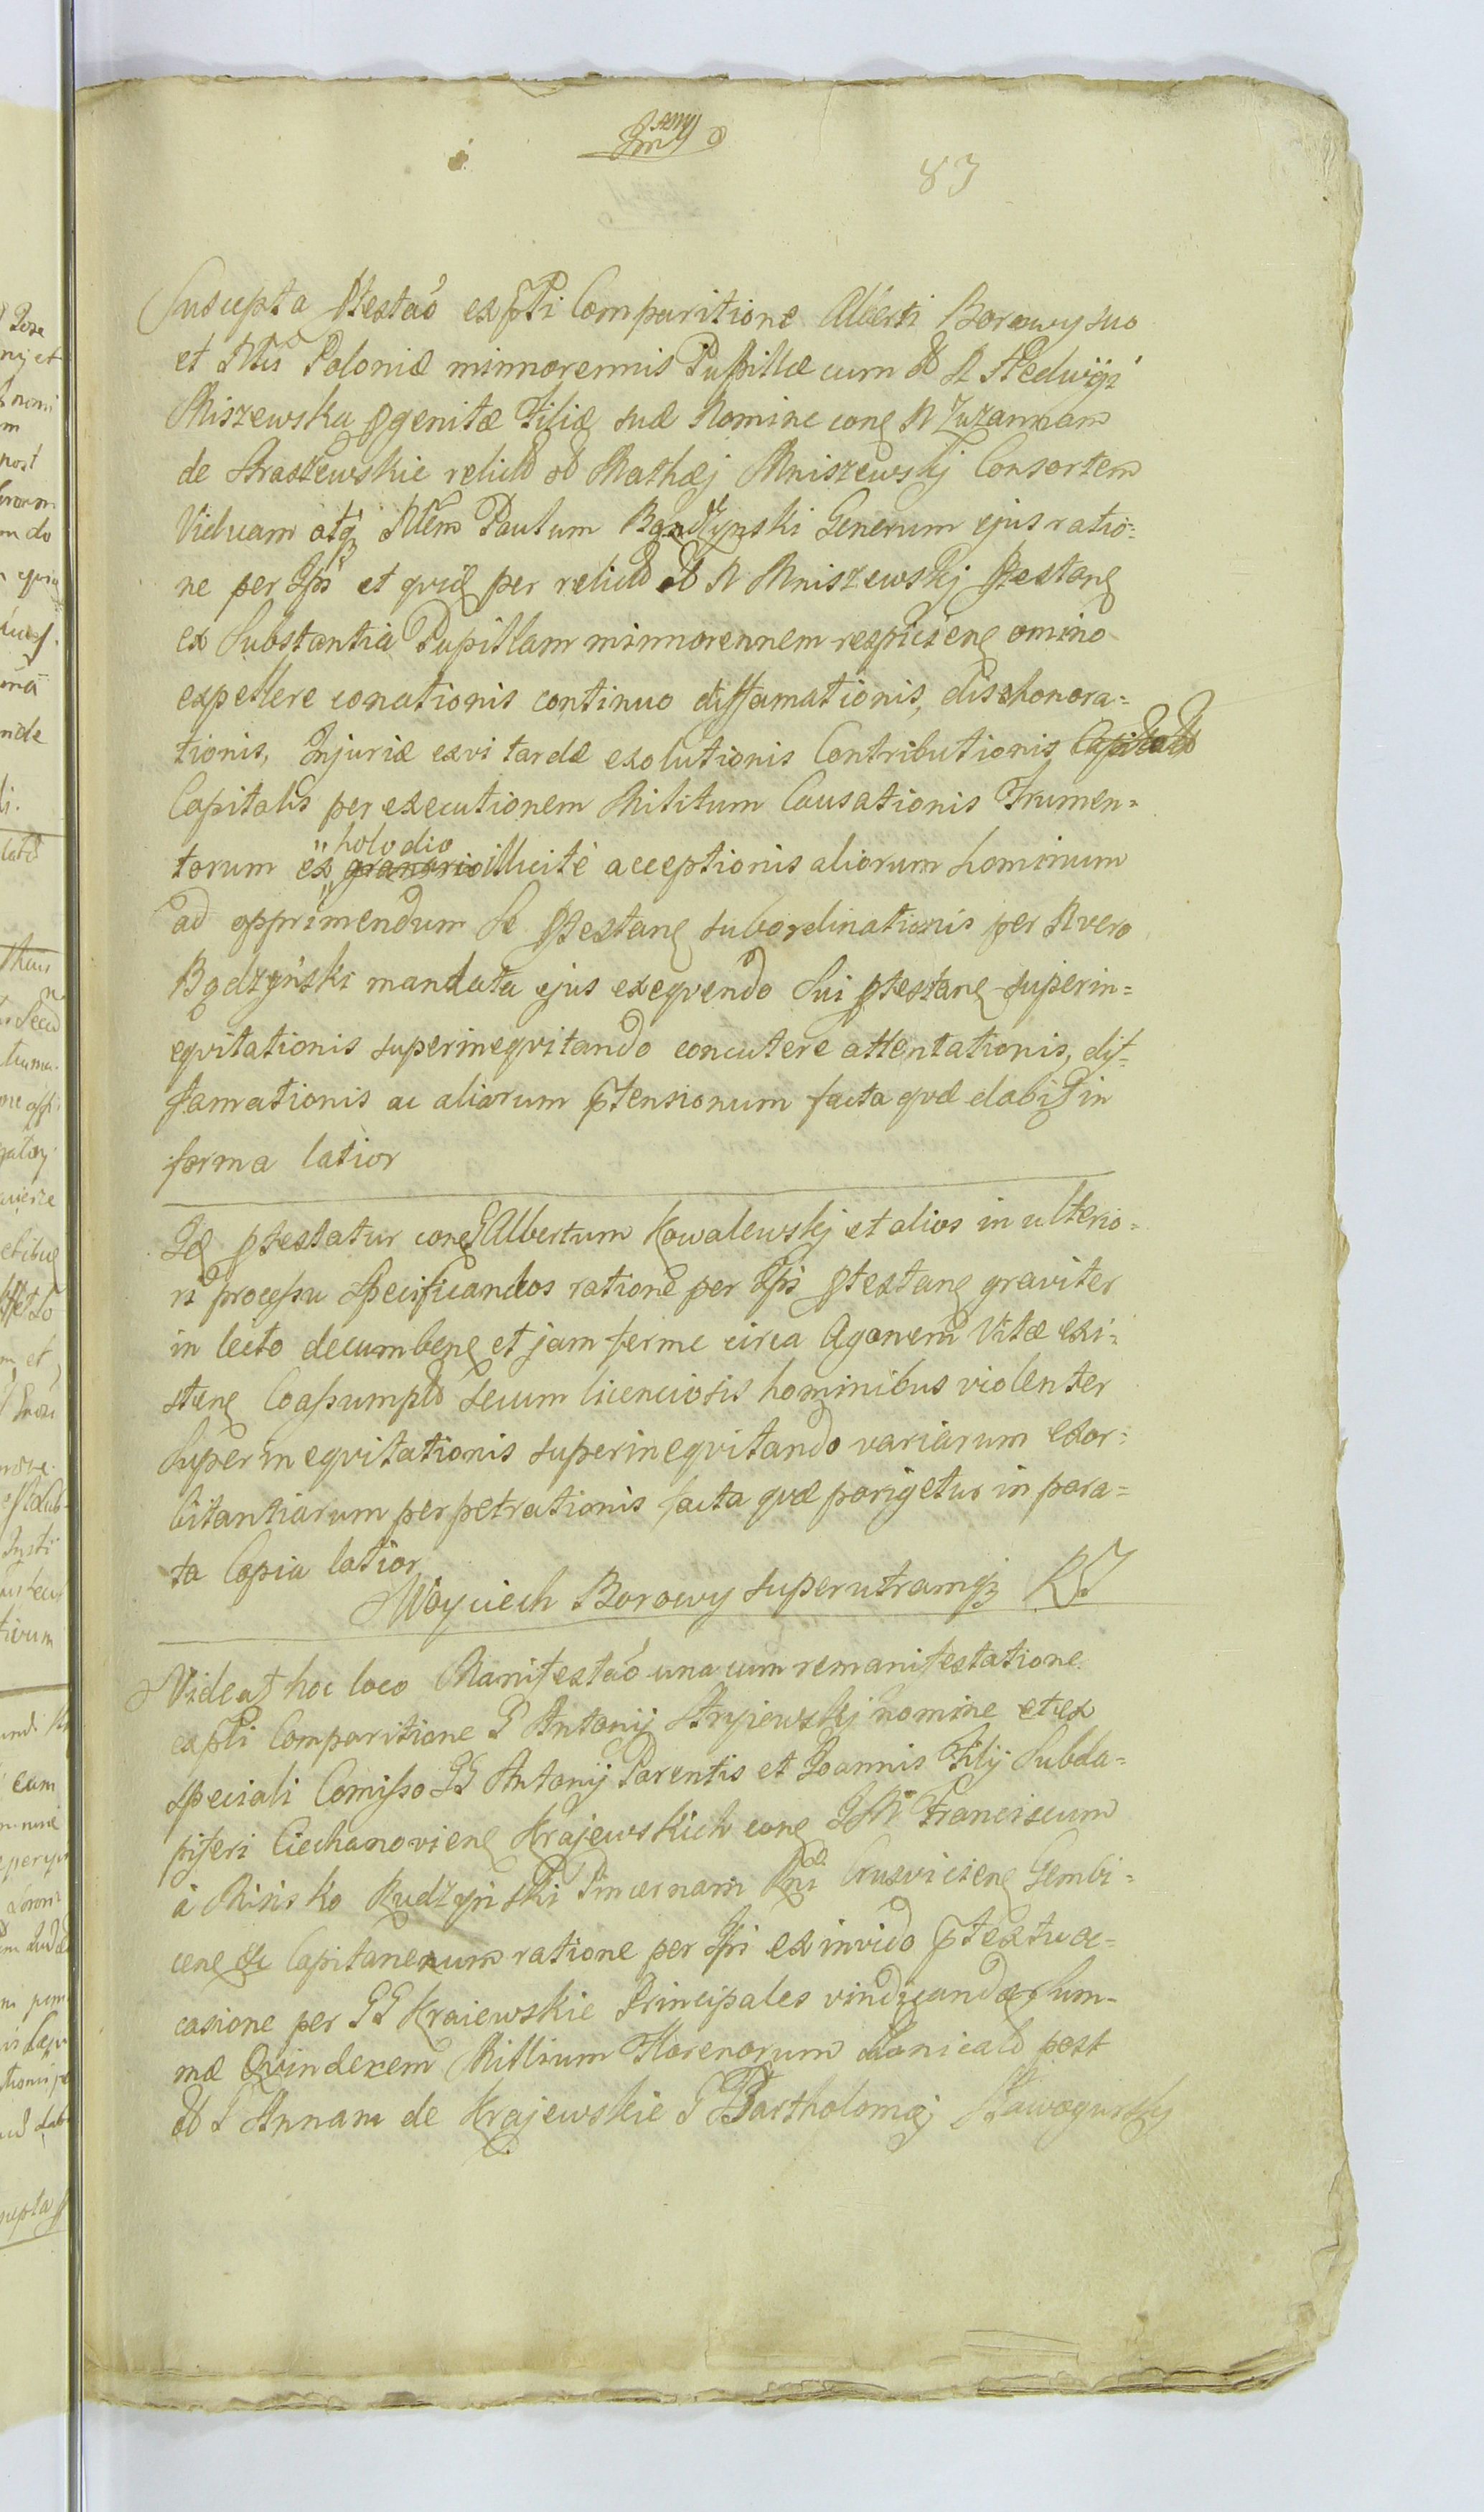 83
Suscepta Ptestaó ex Pti Comparitione Alberti Borowy suo
et Ntis Poloniæ minnorennis Pupillæ cum ol N Hedwigi
Mniszewska pgenitæ Filiæ suæ Nomine con N Zuzannam
de Straszewskie relict ol Mathæj Mniszewskj Consortem
Viduam atq Ntem Paulum Bądzynski Generum ejus ratio=
ne per Ips et qvid per relict ol N Mniszewskj Ptestan
ex Substantia Pupillam minnorennem respicien omino
expellere conationis continuo diffamationis, dishonora=
tionis, Injuriæ ex vi tardæ exolutionis Contributionis
Capitalis per executionem Militum Causationis Frumen=
torum ex holodio illicité acceptionis aliorum hominum
ad opprimendum Se Ptestan subordinationis per N vero
Bądzyński mandata ejus exeqvendo Sui ptestan superin=
eqvitationis superineqvitando concutere attentationis, dif=
famationis ac aliarum ptensionum facta qvæ dabit in
forma latior
Id ptestatur con G Albertum Kowalewskj et alios in ulterio=
ri processu Specificandos ratione per Ips ptestan graviter
in lecto decumben et jam ferme circa Agonem Vitæ exi=
sten Coassumptis secum licenciosis hominibus violenter
Superineqvitationis superineqvitando variarum exor=
bitantiarum perpetrationis facta qvæ porigetur in para=
ta Copia latior
Woyciech Borowy super utramq
Videat hoc loco Manifestaó una cum remanifestatione
ex Pti Comparitione G Antonij Stryiewskj nomine et ex
speciali Comisso GG Antonij Parentis et Joannis Filij Subda=
piferi Ciechanovien Krajewskich con Franciscum
à Kudzynski Pincernam Crusvicien Gembi=
cen Capitaneum ratione per Ips ex invido ptextu oc=
casione per GG Kraiewskie Principales vindicandæ Sum=
mæ Qvindecem Millium Florenorum post
ol G Annam de Krajewskie G Bartholomæj